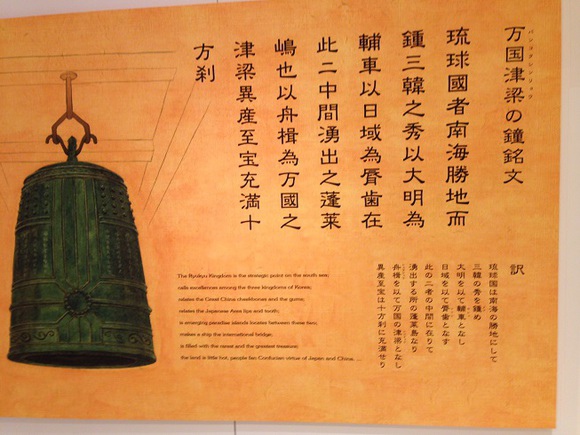 万国津梁の鐘銘文
琉球國者南海勝地而
鍾三韓之秀以大明為
輔車以日域為脣歯在
此二中間湧出之蓬莱
嶋也以舟楫為万国之
津梁異産至宝充満十
方刹
訳
琉球国は南海の勝地にして
三韓の秀を鍾め
大明を以て輔車となし
日域を以て脣歯となす
此の二者の中間に在りて
湧出する所の蓬莱島なり
舟楫を以て万国の津梁となし
異産至宝は十方刹に充満せり
The Ryukyu Kingdom is the strategic point on the south sea;
excellences among the three kingdoms of Korea;
relates the Great China cheekbones and the gums;
relates the Japanese Axes lips and tooth;
is emerging paradise islands locates between these two;
makes a ship the international bridge,
is filled with the rarest and the greatest treasure;
the land is little hot, people fan Confucian virtue of Japan and China. ....